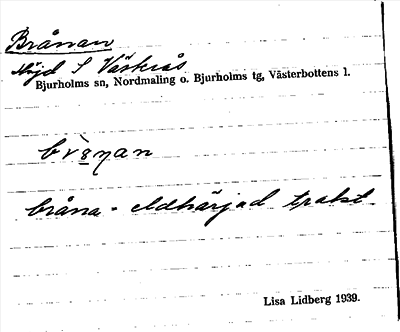 Brånan
Höjd S Västerås
Bjurholms sn, Nordmaling o. Bjurholms tg, Västerbottens l.
bråna = eldhärjad trakt.
Lisa Lidberg 1939.